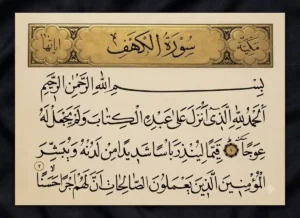 مكية سورة الكهف اياتها
بسم الله الرحمن الرحيم
الحمد لله الذي أنزل على عبده الكتاب ولم يجعل له
عوجا ۝ قيما لينذر بأسا شديدا من لدنه ويبشر
المؤمنين الذين يعملون الصالحات أن لهم أجرا حسنا